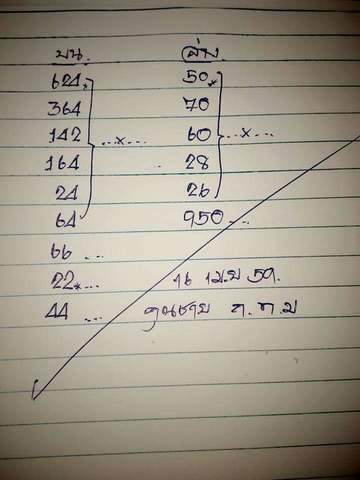 บน. ล่าง.
624 50
364 70
142 ...x... 60 ...x...
164 28
24 26
64 950...
66 ...
22 ... 16 เม.ย 59.
44 ... ก.ท.ม